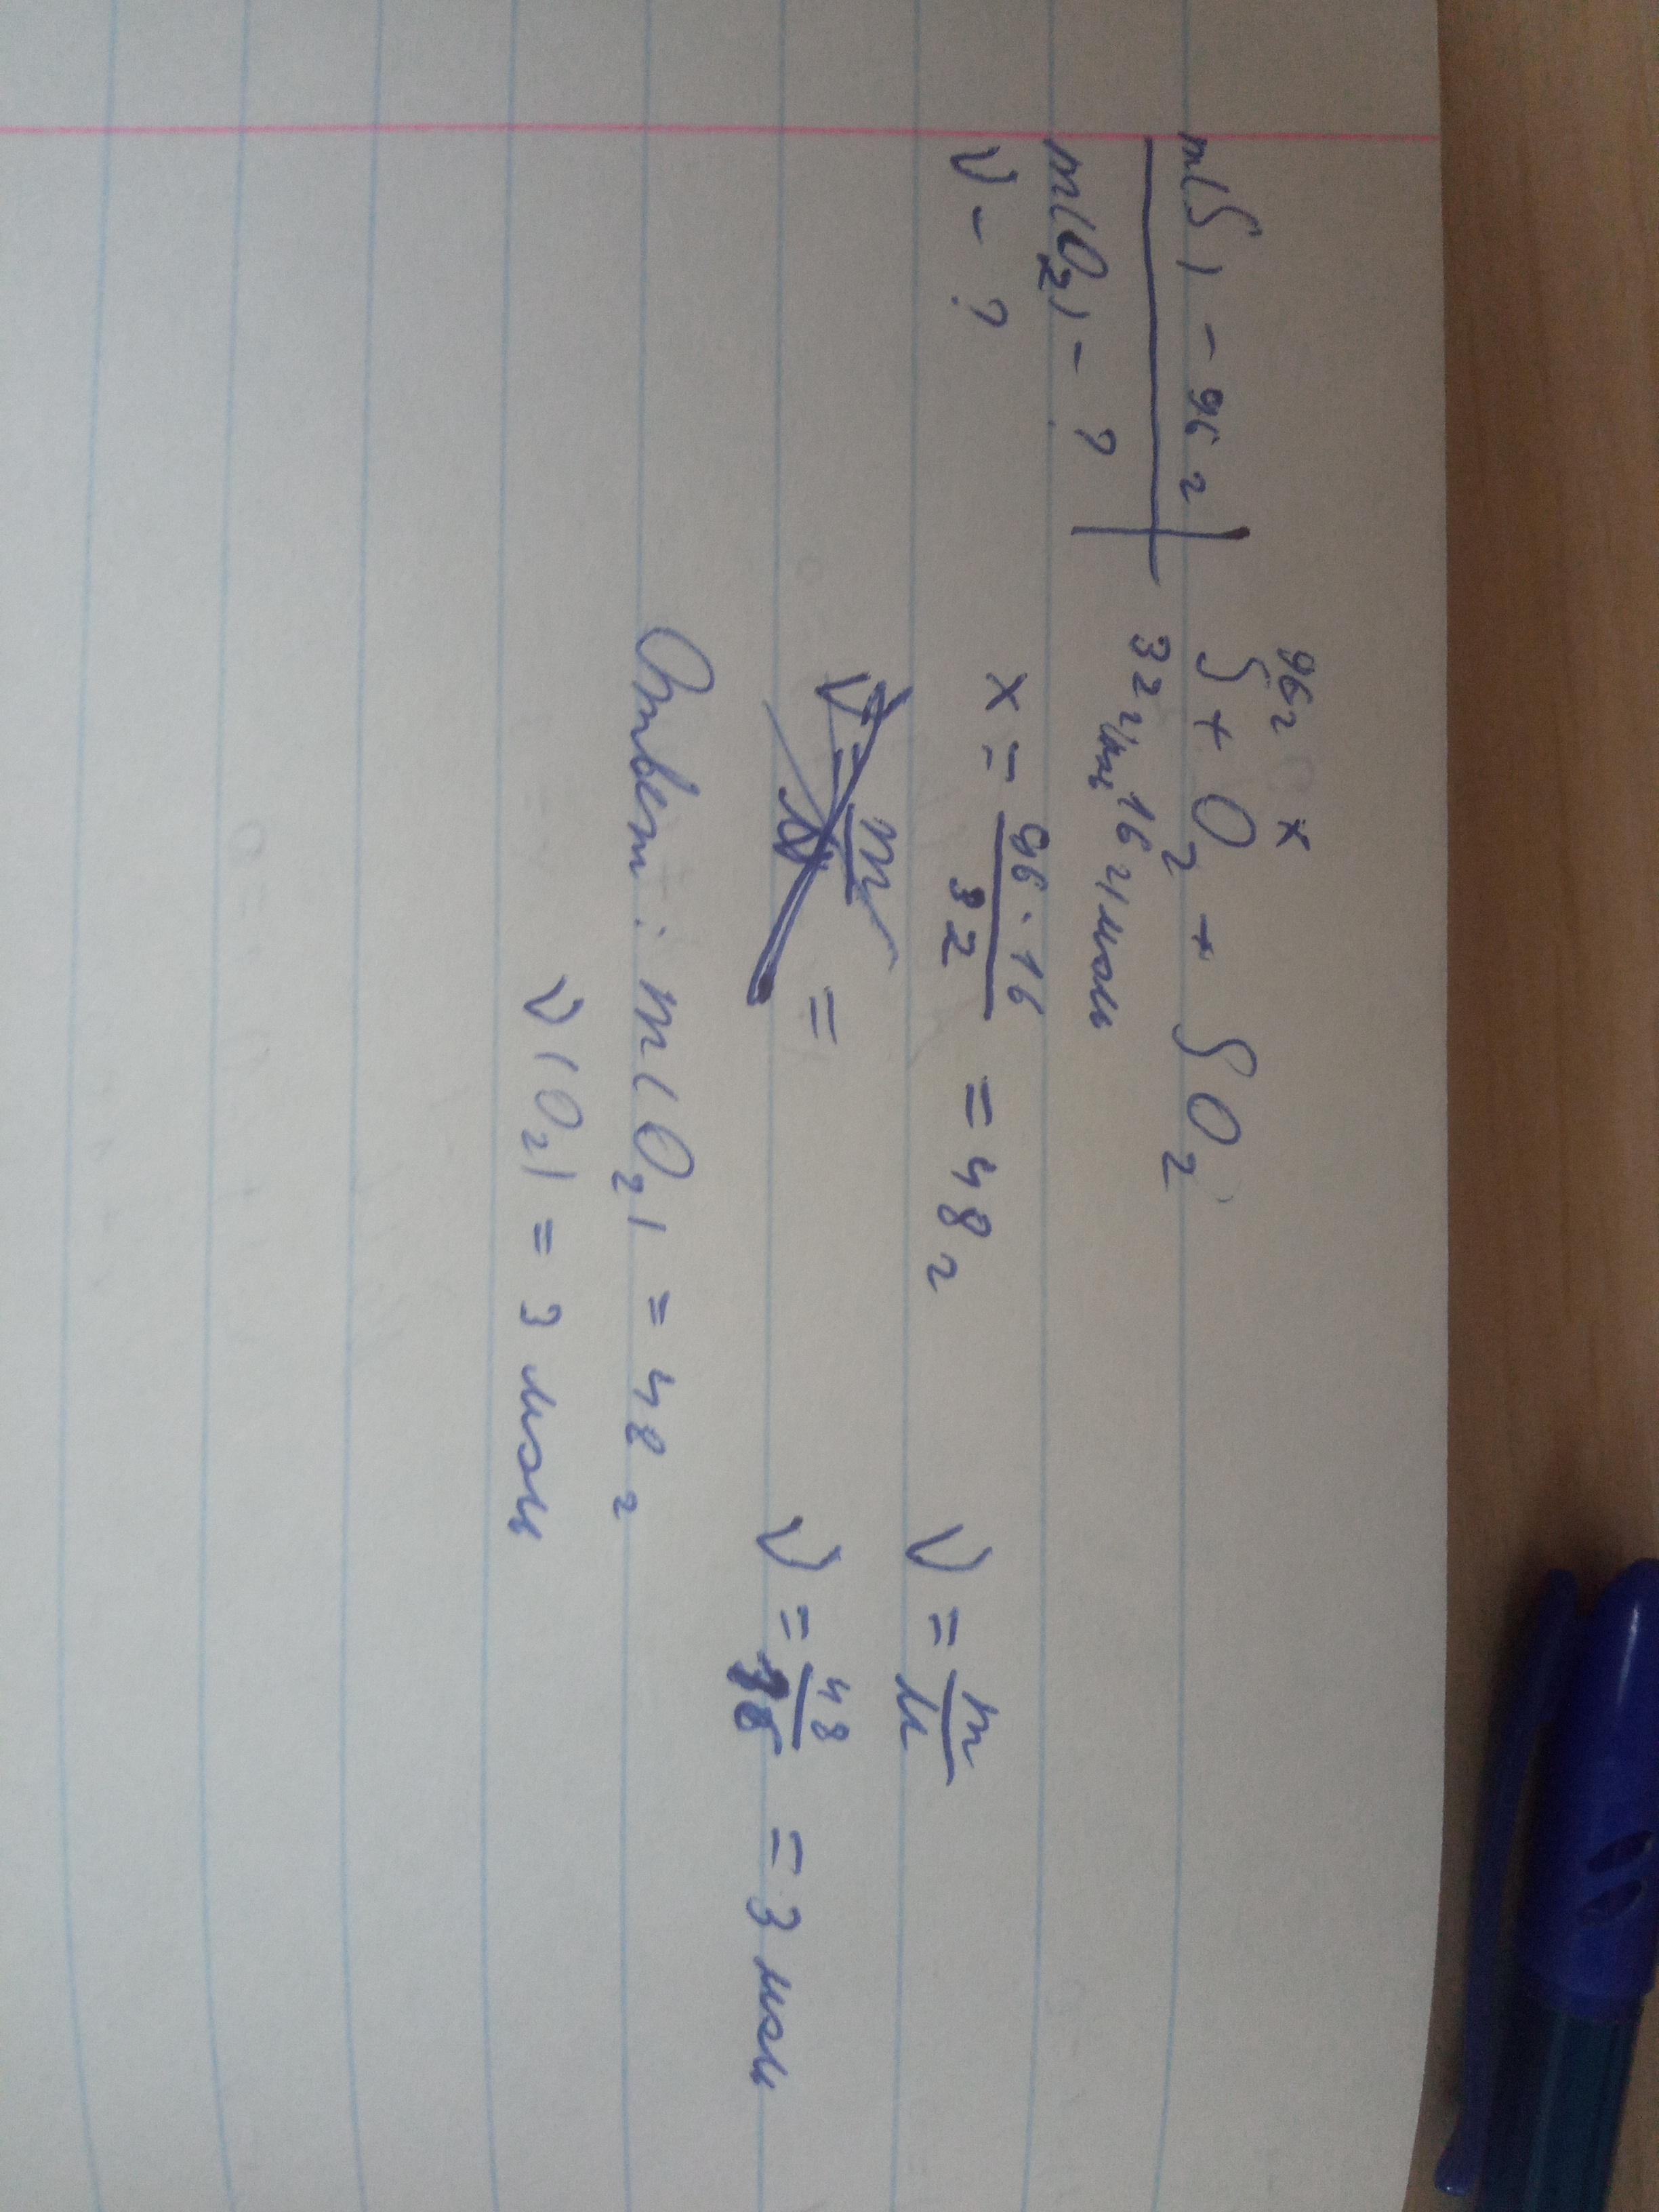 m(S) - 96 г
m(O₂) - ?
ν - ?
96г x
S + O₂ + SO₂
32 г/моль 16 г/моль
x = 96 · 16 / 32 = 48 г
ν = m / M
ν = m / =
ν = 48 / 16 = 3 моль
Ответ: m(O₂) = 48 г
ν(O₂) = 3 моль